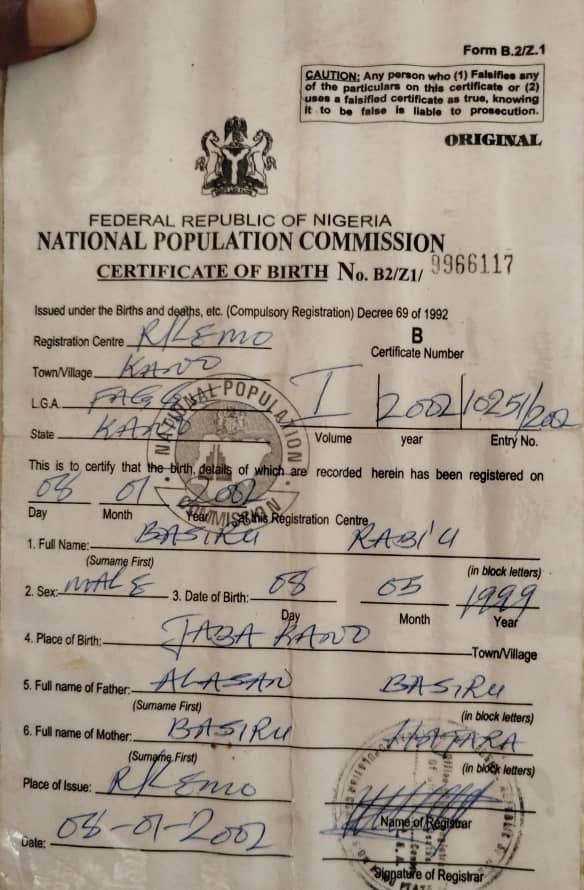 Form B.2/Z.1
CAUTION: Any person who (1) Falsifies any
of the particulars on this certificate or (2)
uses a falsified certificate as true, knowing
it to be false is liable to prosecution.
ORIGINAL
FEDERAL REPUBLIC OF NIGERIA
NATIONAL POPULATION COMMISSION
CERTIFICATE OF BIRTH No. B2/Z1/ 9966117
Issued under the Births and deaths, etc. (Compulsory Registration) Decree 69 of 1992
Registration Centre R/LEMO
B
Certificate Number
Town/Village KANO
L.G.A. FAGGE
I 2002 10251/2002
State KANO
Volume year Entry No.
NATIONAL POPULATION COMMISSION
This is to certify that the birth, details of which are recorded herein has been registered on
08 01 2002
Day Month Year at this Registration Centre
1. Full Name: BASIRU RABI'U
(Surname First) (in block letters)
2. Sex: MALE 3. Date of Birth: 08 05 1999
Day Month Year
4. Place of Birth: JABA KANO Town/Village
5. Full name of Father: ALASAN BASIRU
(Surname First) (in block letters)
6. Full name of Mother: BASIRU HAJARA
(Surname First) (in block letters)
Place of Issue: R/LEMO
Name of Registrar
Date: 08-01-2002
Signature of Registrar